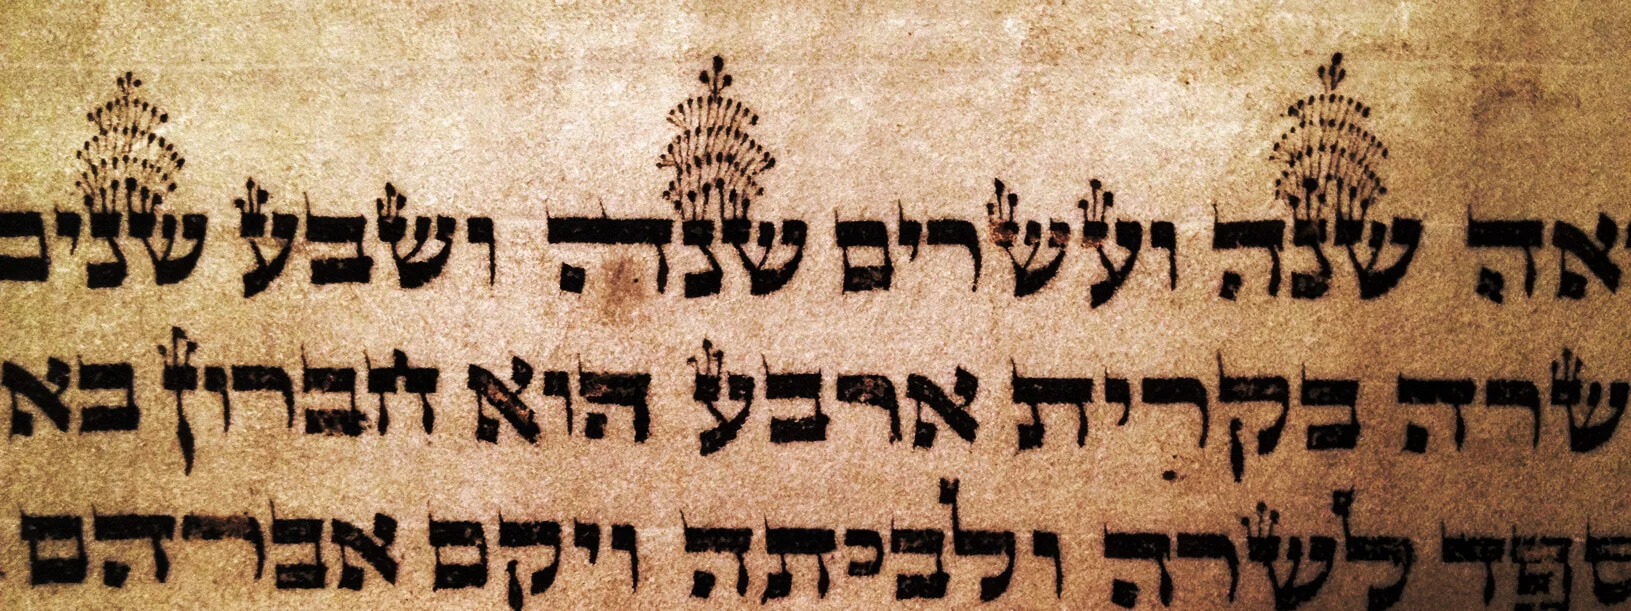 אה שנה ועשרים שנה ושבע שנים
שרה בקרית ארבע הוא חברון בא
ספד לשרה ולבכתה ויקם אברהם